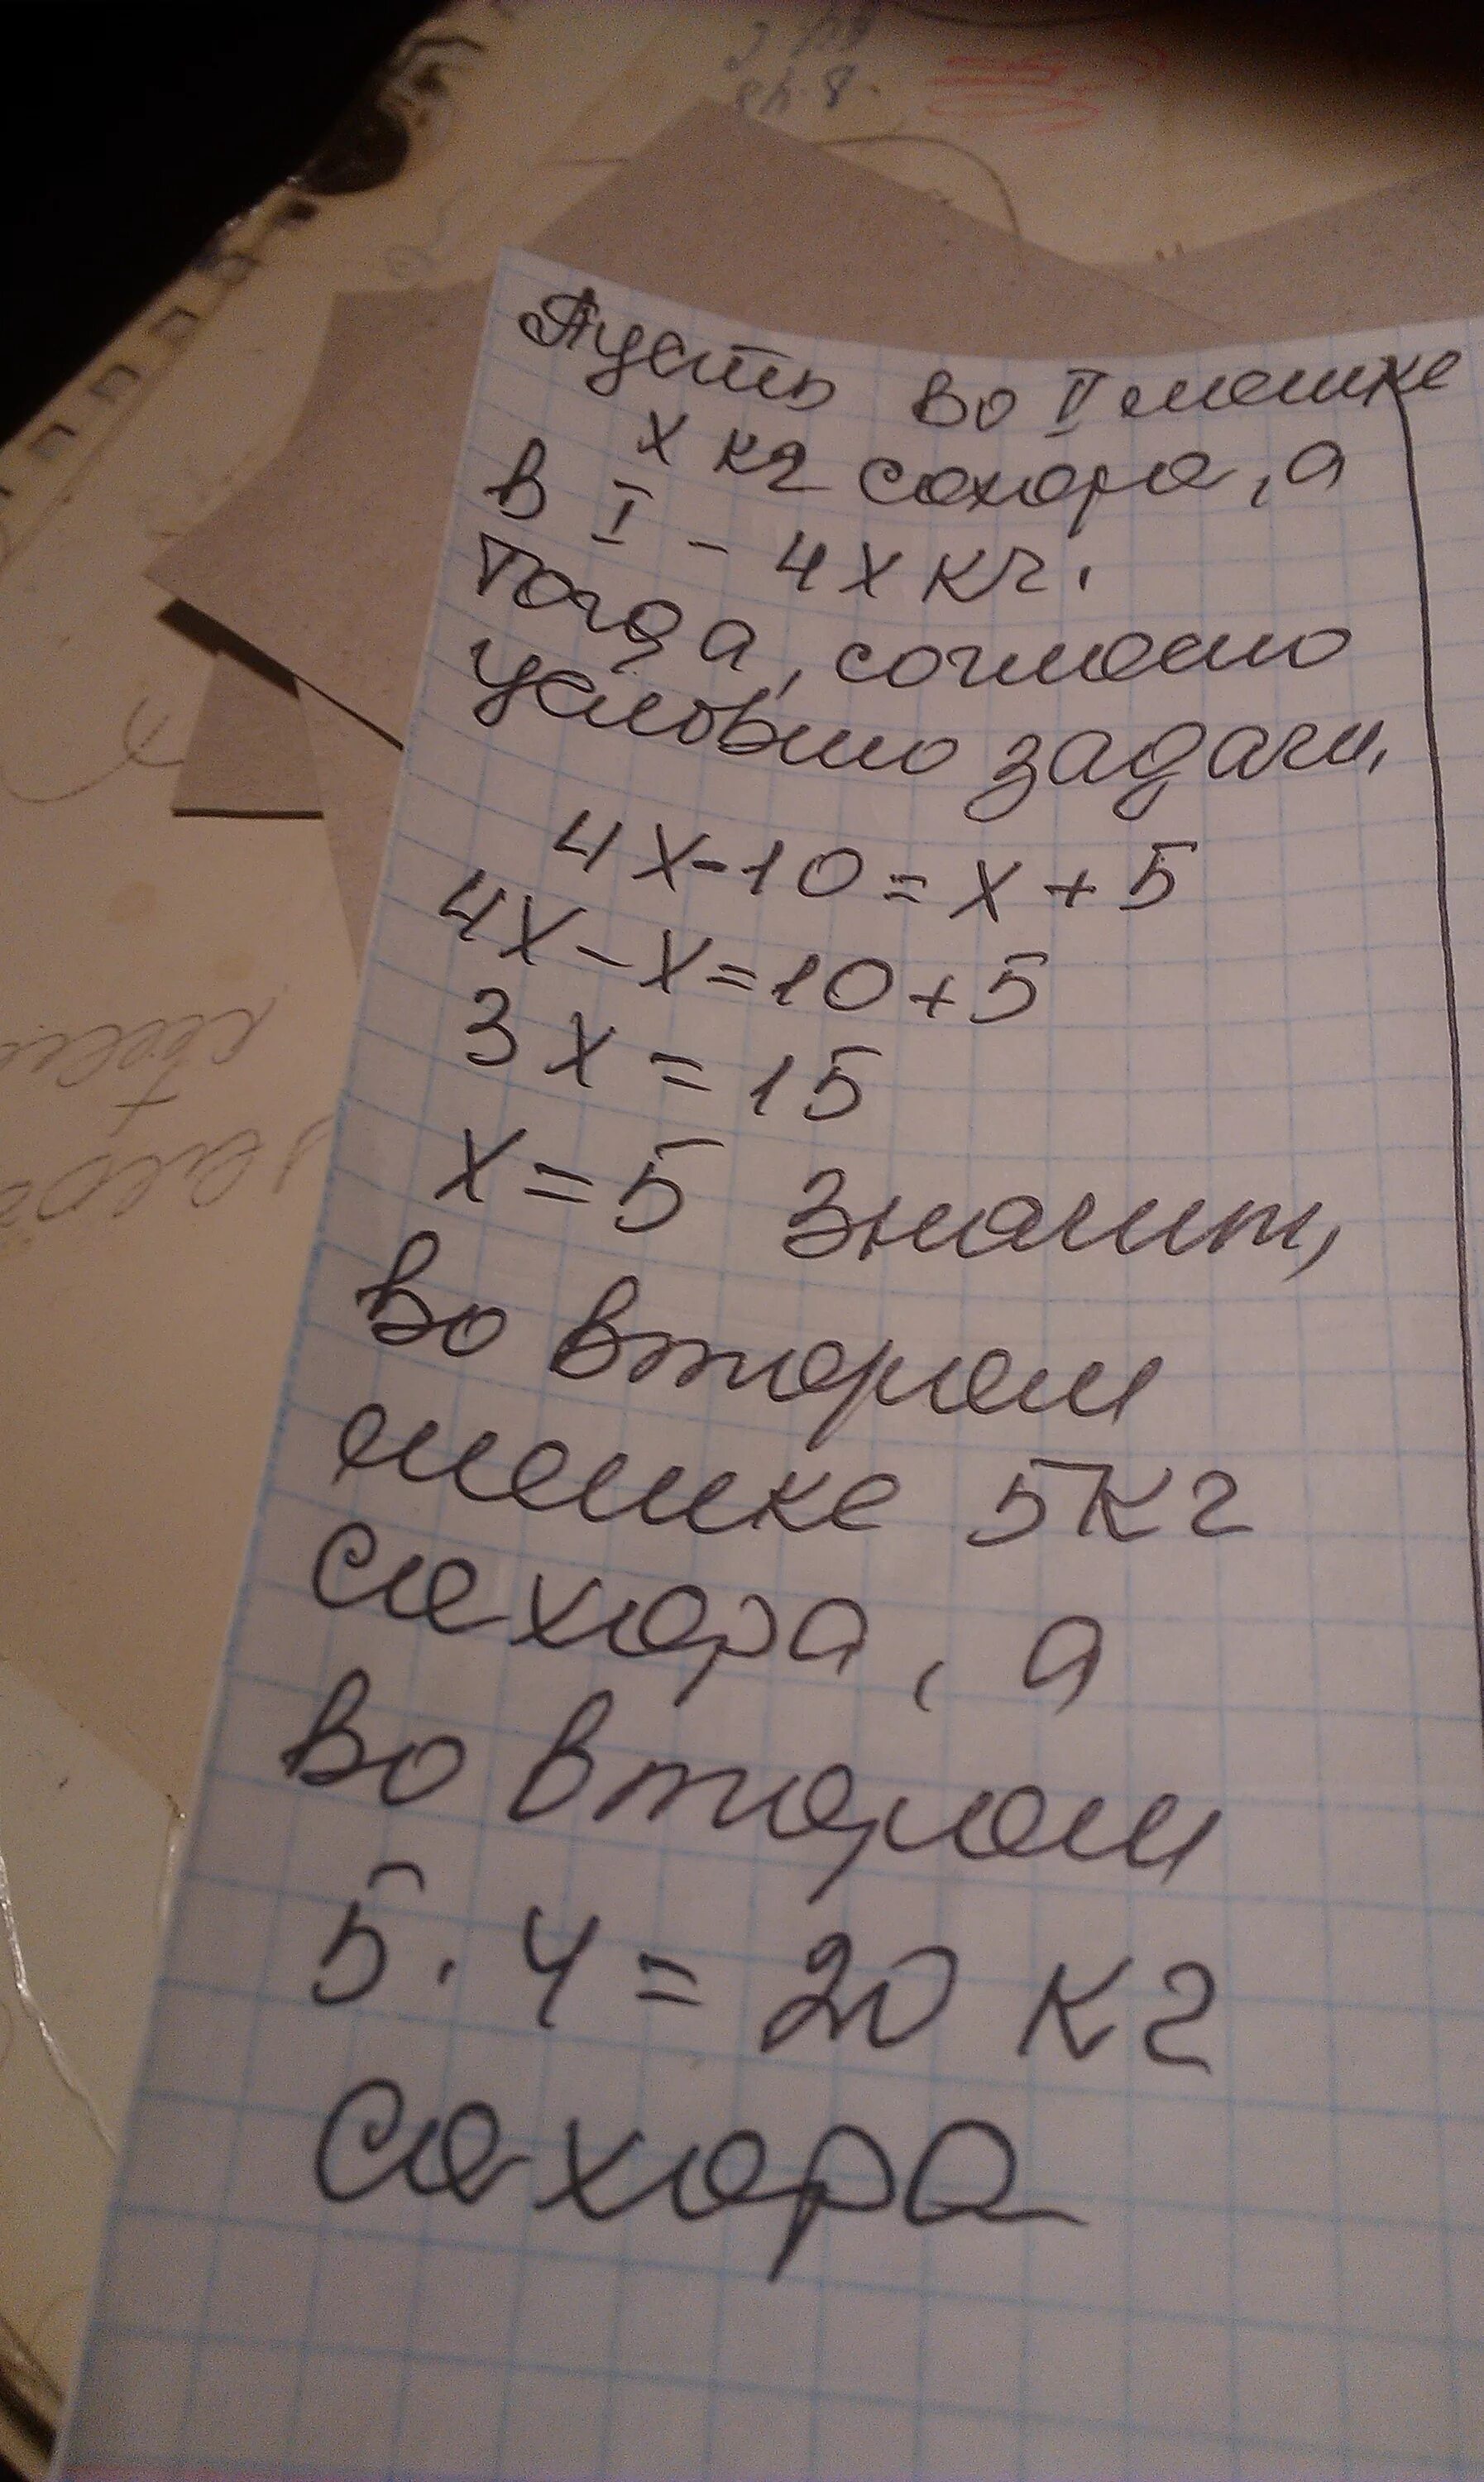 Пусть во II мешке
x кг сахара, а
в I - 4x кг.
Тогда, согласно
условию задачи,
4x-10=x+5
4x-x=10+5
3x=15
x=5 Значит,
во втором
мешке 5кг
сахара, а
во втором
5·4=20 кг
сахара